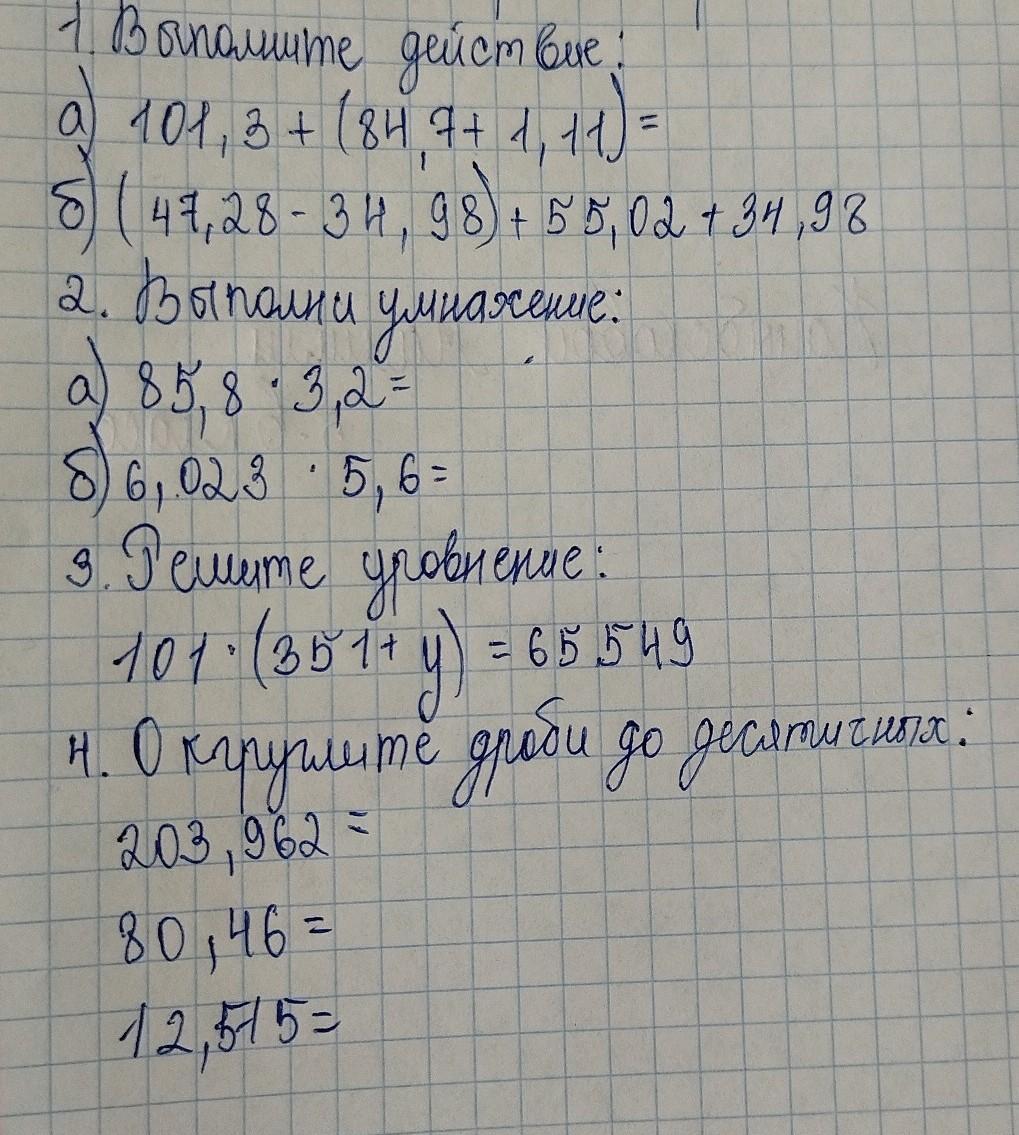 1. Выполните действие:
а) 101,3 + (84,7 + 1,11) =
б) (47,28 - 34,98) + 55,02 + 34,98
2. Выполни умнажение:
а) 85,8 · 3,2 =
б) 6,023 · 5,6 =
3. Решите уровнение:
101 · (351 + у) = 65549
4. Округлите дроби до десятичных:
203,962 =
80,46 =
12,515 =